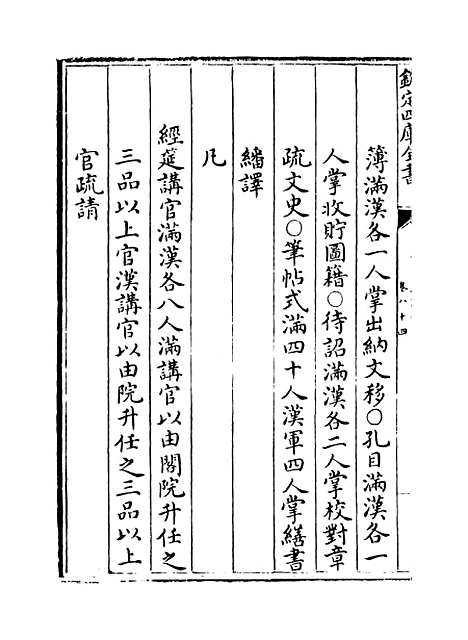 欽定四庫全書
卷八十四
簿滿漢各一人掌出納文移○孔目滿漢各一
人掌收貯圖籍○待詔滿漢各二人掌校對章
疏文史○筆帖式滿四十人漢軍四人掌繕書
繙譯
凡
經筵講官滿漢各八人滿講官以由閣院升任之
三品以上官漢講官以由院升任之三品以上
官疏請